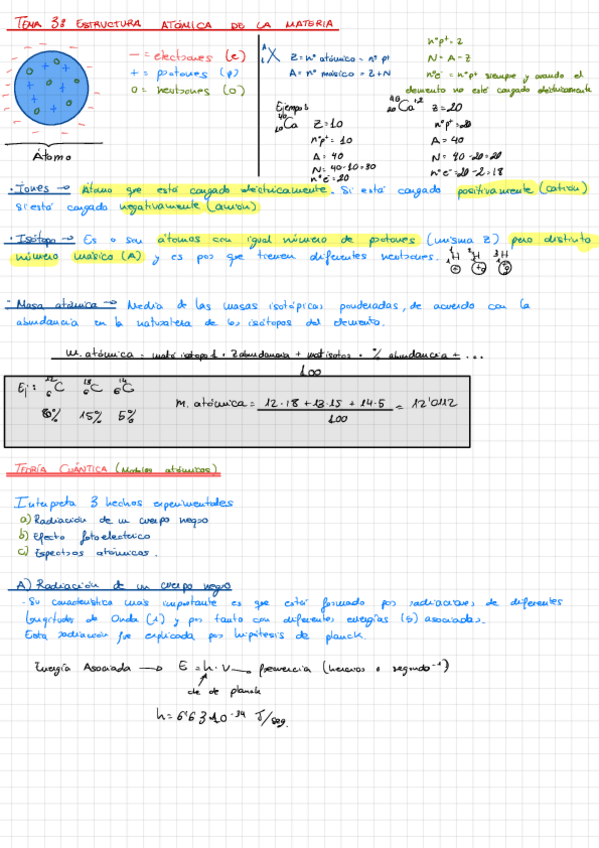 TEMA 3: ESTRUCTURA ATÓMICA DE LA MATERIA
- = electrones (e)
+ = protones (p)
o = neutrones (o)
Átomo
A
Z X Z = nº atómico = nº p+
A = nº másico = Z+N
nº p+ = Z
N = A - Z
nº e- = nº p+ siempre y cuando el
elemento no esté cargado eléctricamente
Ejemplo
40
20 Ca Z = 10
nº p+ = 10
A = 40
N = 40-10 = 30
nº e- = 20
40 Ca +2
20 Z = 20
nº p+ = 20
A = 40
N = 40-20 = 20
nº e- = 20-2 = 18
· Iones → Átomo que está cargado eléctricamente. Si está cargado positivamente (catión)
si está cargado negativamente (anión)
· Isótopo → Es o son átomos con igual número de protones (misma Z) pero distinto
número másico (A) y es por que tienen diferentes neutrones. 1H 2H 3H
- Masa atómica → Media de las masas isotópicas ponderadas, de acuerdo con la
abundancia en la naturaleza de los isótopos del elemento.
m. atómica = isótopo 1 · % abundancia + · % abundancia + ...
100
Ej: 12 6 C 13 6 C 14 6 C
80% 15% 5%
m. atómica = 12·18 + 13·15 + 14·5 = 12'0112
100
TEORÍA CUÁNTICA (Modelos atómicos)
Interpreta 3 hechos experimentales
a) Radiación de un cuerpo negro
b) Efecto fotoeléctrico
c) Espectros atómicos.
A) Radiación de un cuerpo negro
- Su característica más importante es que está formado por radiaciones de diferentes
longitudes de Onda (λ) y por tanto con diferentes energías (s) asociadas.
Esta radiación fue explicada por hipótesis de planck.
Energía Asociada → E = h · ν → frecuencia (hercios o segundo-1)
cte de planck
h = 6'63·10-34 J/seg.